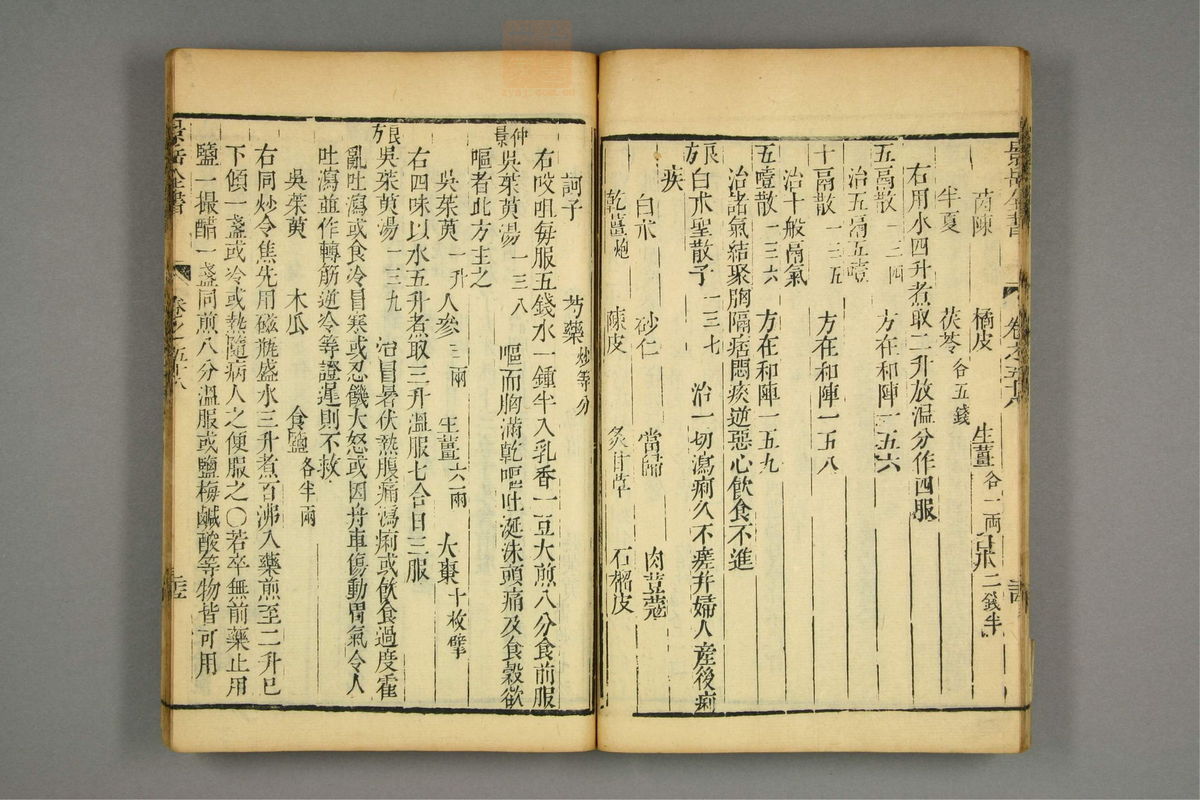 景岳全書 卷之五十八
茵陳 橘皮 生薑各一兩 二錢半
半夏 茯苓各五錢
右用水四升煮取二升放溫分作四服
五膈散一三四 方在和陣一五六
治五膈五噎
十膈散一三五 方在和陣一五八
治十般膈氣
五噎散一三六 方在和陣一五九
治諸氣結聚胸膈痞悶痰逆惡心飲食不進
良方白朮聖散子一三七 治一切瀉痢久不瘥并婦人產後痢
疾
白朮 砂仁 當歸 肉荳蔻
乾薑炮 陳皮 炙甘草 石榴皮
訶子 芍藥炒等分
右㕮咀每服五錢水一鍾半入乳香一豆大煎八分食前服
仲景吳茱萸湯一三八 嘔而胸滿乾嘔吐涎沫頭痛及食穀欲
嘔者此方主之
吳茱萸一升 人參三兩 生薑六兩 大棗十枚擘
右四味以水五升煮取三升溫服七合日三服
良方吳茱萸湯一三九 治冒暑伏熱腹痛瀉痢或飲食過度霍
亂吐瀉或食冷冒寒或忍饑大怒或因舟車傷動胃氣令人
吐瀉並作轉筋逆冷等證遲則不救
吳茱萸 木瓜 食鹽各半兩
右同炒令焦先用磁瓶盛水三升煮百沸入藥煎至二升已
下傾一盞或冷或熱隨病人之便服之○若卒無前藥止用
鹽一撮醋一盞同煎八分溫服或鹽梅鹹酸等物皆可用
景岳全書 卷之五十八